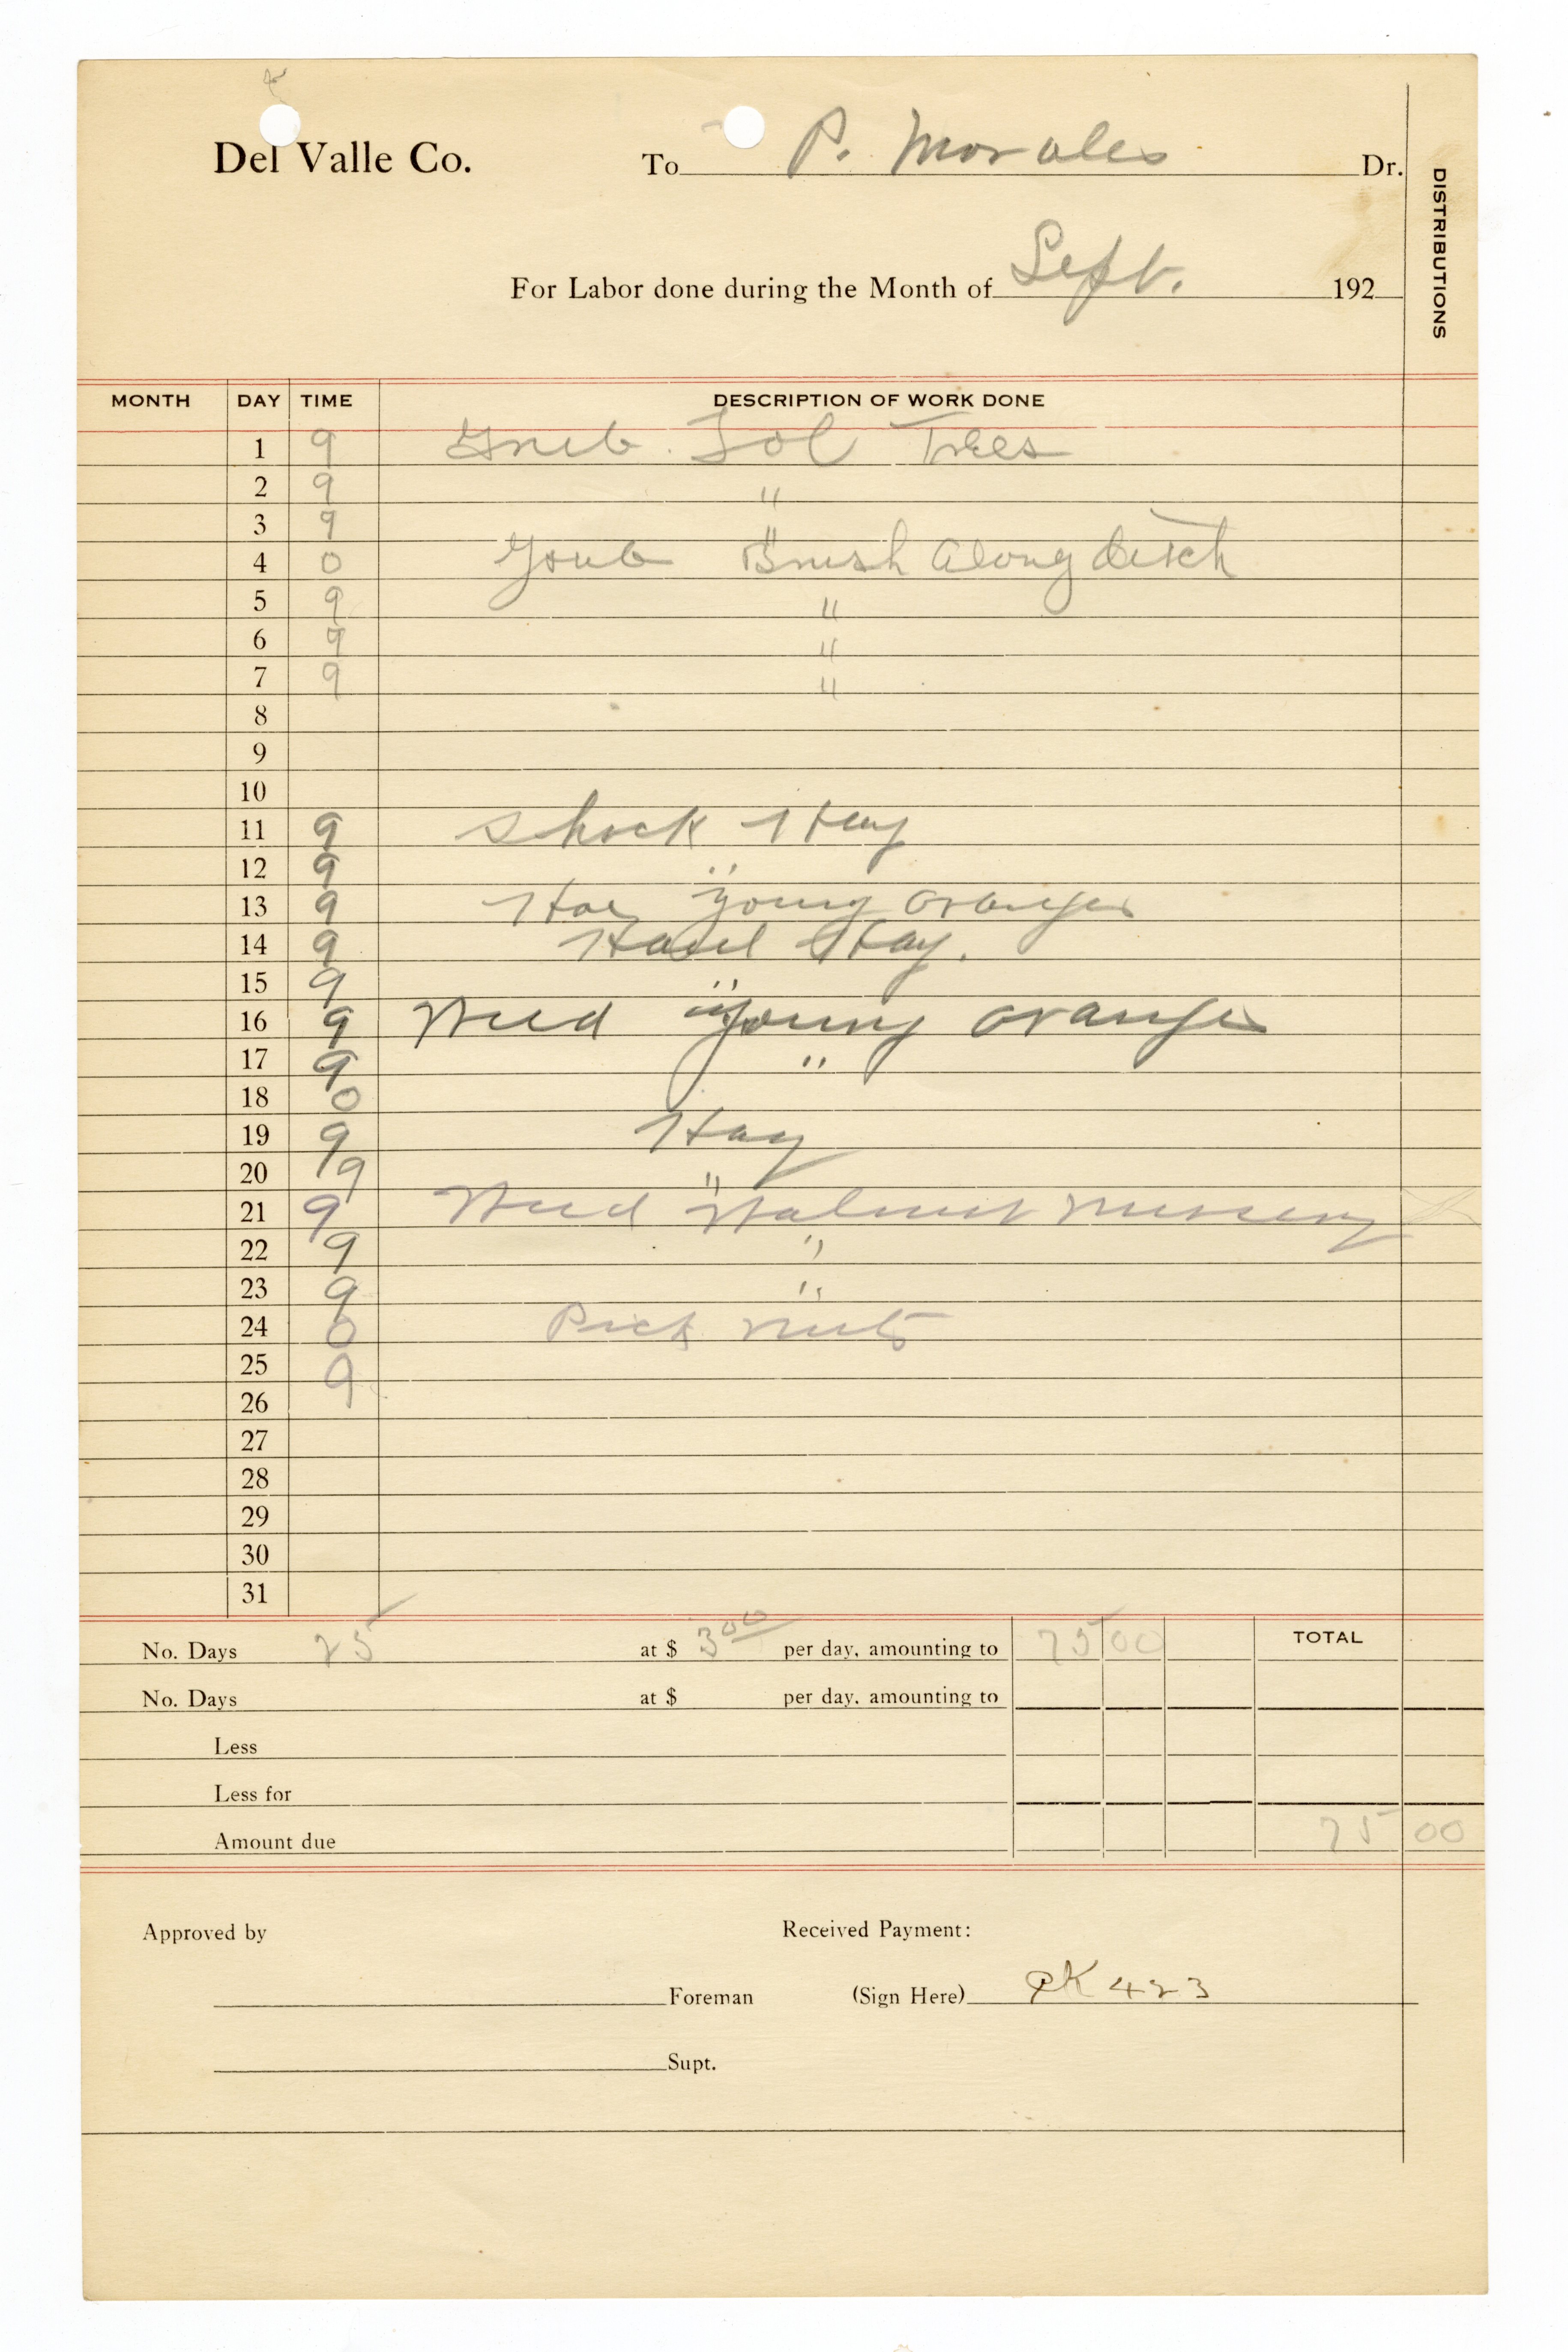 Del Valle Co. To P. Morales Dr.
DISTRIBUTIONS
For Labor done during the Month of Sept. 192
MONTH DAY TIME DESCRIPTION OF WORK DONE
1 9 Grub Sol Trees
2 9 "
3 9 "
4 0 Grub Brush Along ditch
5 9 "
6 9 "
7 9 "
8
9
10
11 9 Shock Hay
12 9 "
13 9 Hoe young oranges
14 9 Haul Hay.
15 9 "
16 9 Weed young oranges
17 9 "
18 0
19 9 Hay
20 9 "
21 9 Weed Walnut Nursery
22 9 "
23 9 "
24 0 Pick nuts
25 9
26
27
28
29
30
31
No. Days 25 at $ 3 00 per day, amounting to 75 00 TOTAL
No. Days at $ per day, amounting to
Less
Less for
Amount due 75 00
Approved by Received Payment:
Foreman (Sign Here) 423
Supt.